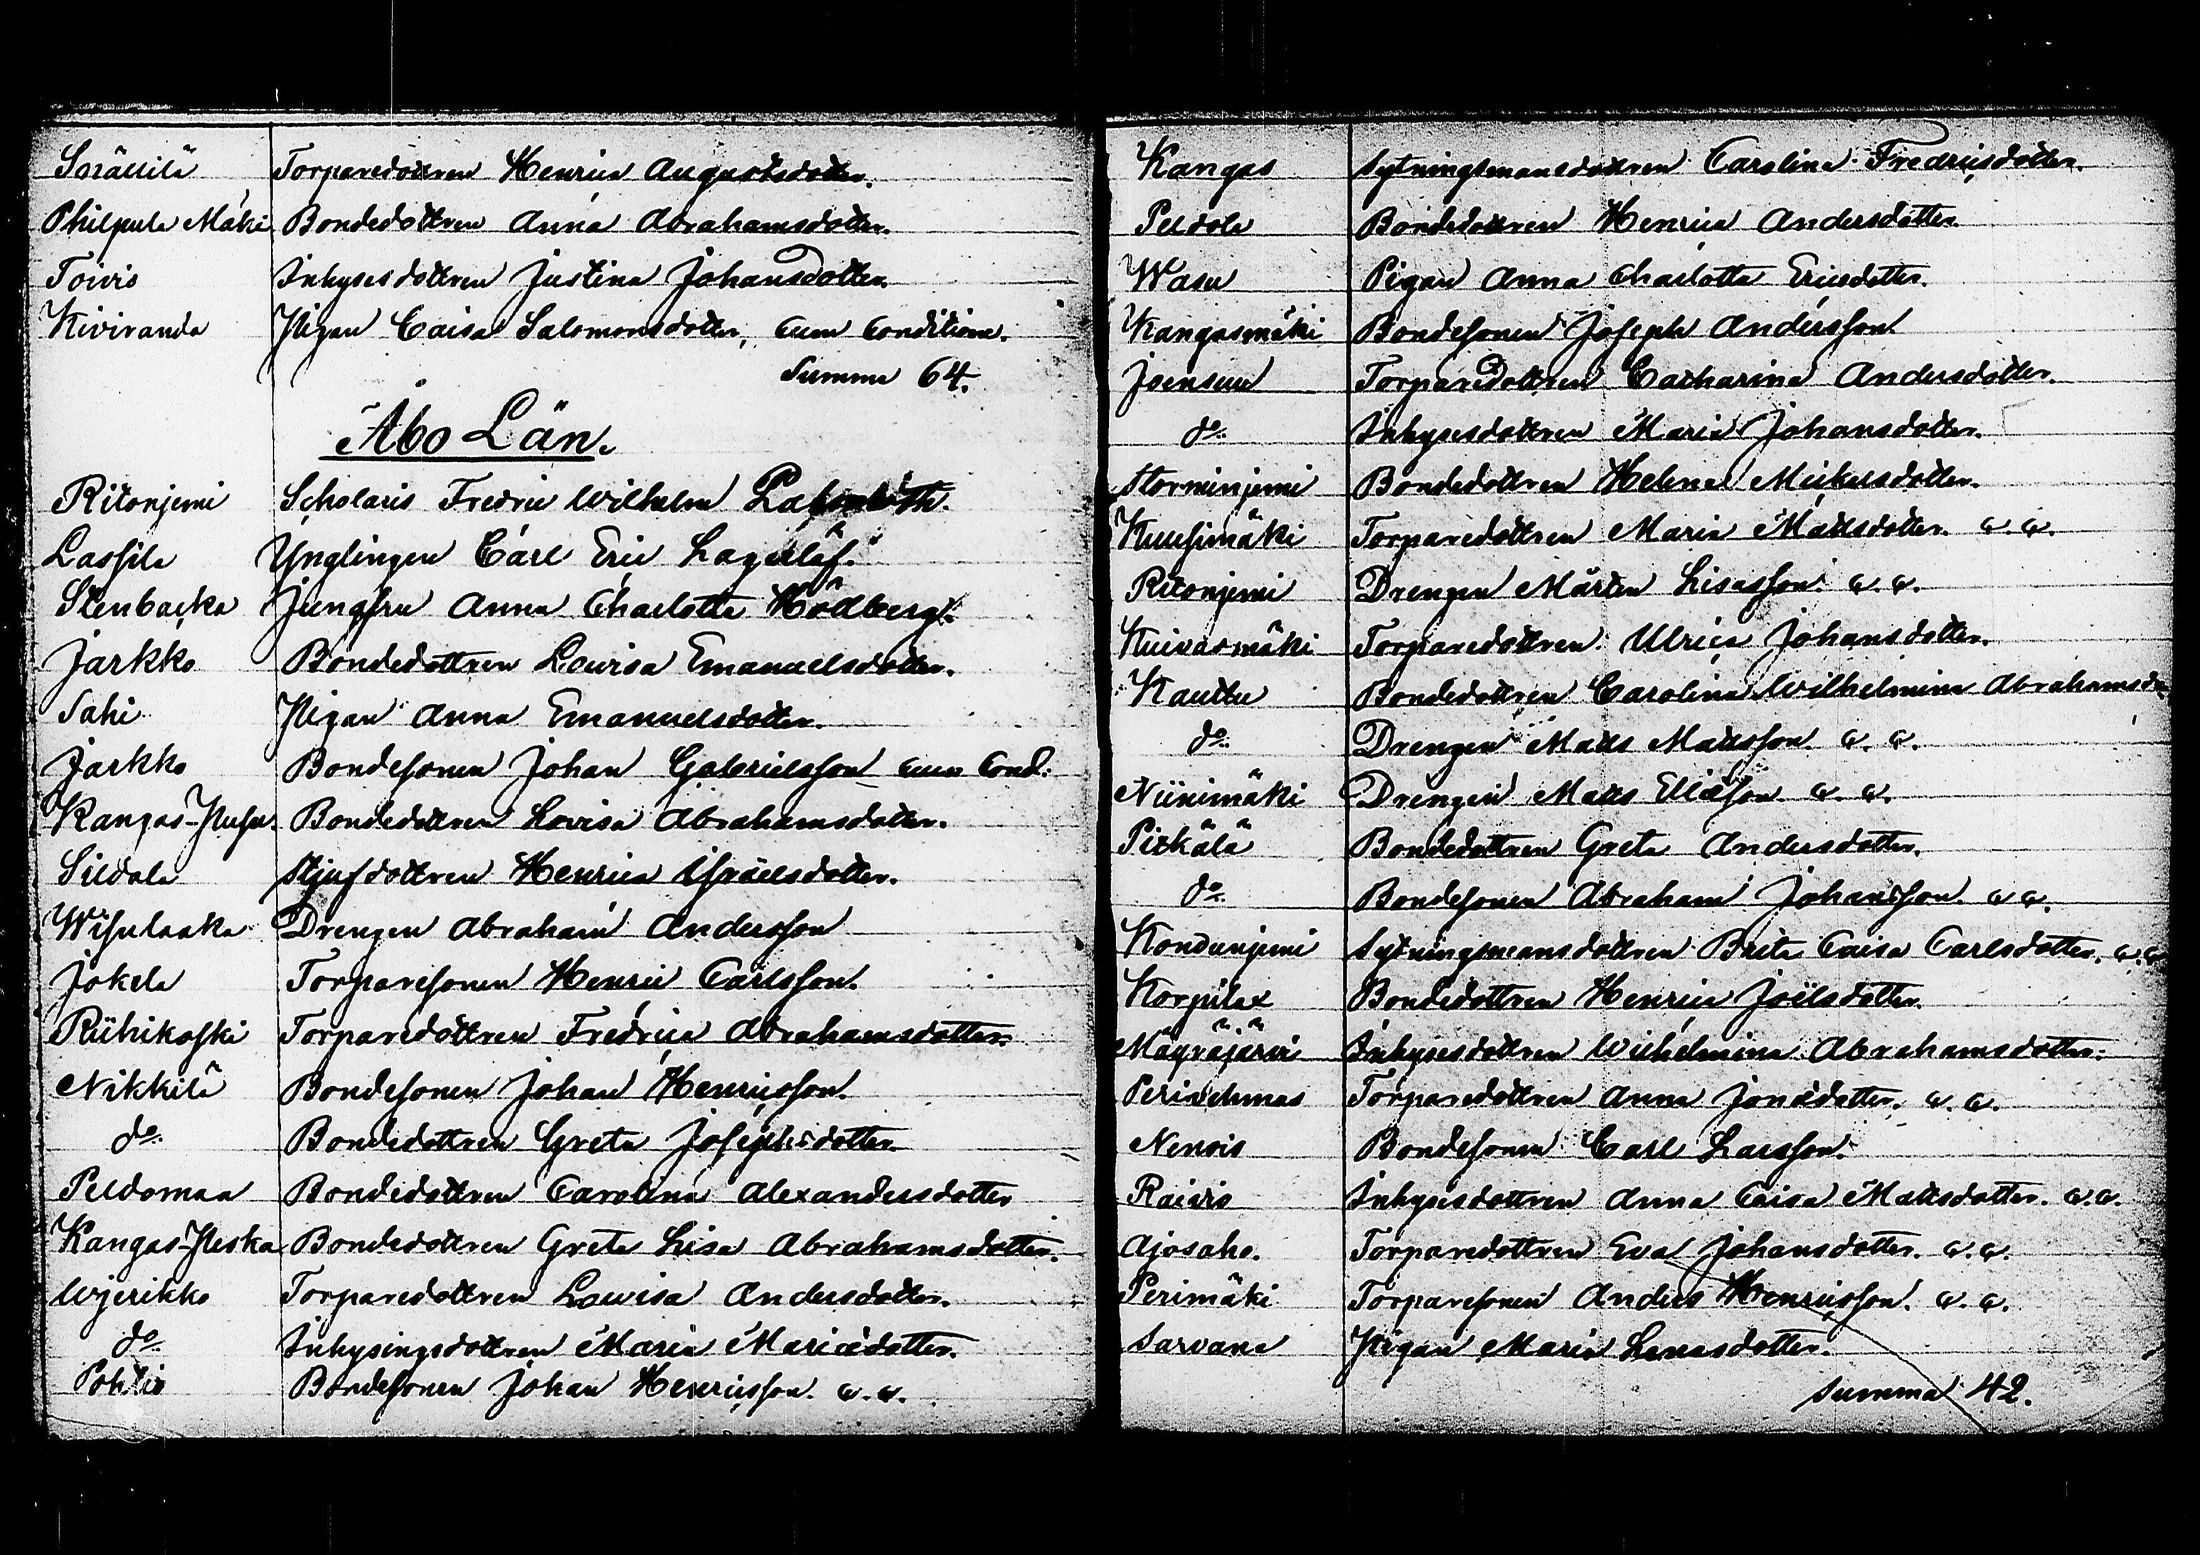 Sorättilä Torparedottren Henrica Augustsdotter.
Philpula Mäki Bondedottren Anna Abrahamsdotter.
Toivio Inhysesdottren Justina Johansdotter.
Kiviranda Pigan Caisa Salomonsdotter, cum conditione.
Summa 64.
Åbo Län.
Ritoniemi Scholaris Fredric Wilhelm
Lassila Ynglingen Carl Eric Lagerlöf.
Stenbacka Jungfru Anna Charlotta Hödberg.
Jarkko Bondedottren Lovisa Emanuelsdotter.
Sahi Pigan Anna Emanuelsdotter.
Jarkko Bondesonen Johan Gabrielsson cum Cond:
Kangas- Bondedottren Lovisa Abrahamsdotter.
Sildala Stjufdottren Henrica Israelsdotter.
Wisulaaka Drengen Abraham Andersson
Jokela Torparesonen Henric Carlsson.
Riihikoski Torparedottren Fredrica Abrahamsdotter.
Nikkilä Bondesonen Johan Henricsson.
do. Bondedottren Greta Josephsdotter.
Peldomaa Bondedottren Carolina Alexandersdotter
Kangas-Yleska Bondedottren Greta Lisa Abrahamsdotter.
Wjerikko Torparedottren Lovisa Andersdotter.
do. Inhysingsdottren Maria Mariædotter.
Pohlio Bondesonen Johan Henricsson. c. c.
Kangas Sytningsmansdottren Carolina Fredricsdotter.
Peldola Bondedottren Henrica Andersdotter.
Wasu Pigan Anna Charlotta Ericsdotter.
Kangasmäki Bondesonen Joseph Andersson.
Joensuu Torparedottren Catharina Andersdotter.
do. Inhysesdottren Maria Johansdotter.
Storniniemi Bondedottren Helena Mickelsdotter.
Kuusimäki Torparedottren Maria Mattsdotter. c. c.
Ritoniemi Drengen Mårten Lisasson. c. c.
Kuivasmäki Torparedottren Ulrica Johansdotter.
Kauttu Bondedottren Carolina Wilhelmina Abrahamsd
do. Drengen Matts Mattsson. c. c.
Niinimäki Drengen Matts Eliæson. c. c.
Pitkälä Bondedottren Greta Andersdotter.
do. Bondesonen Abraham Johansson. c c.
Kondunjemi Sytningsmansdottren Brita Caisa Carlsdotter. c. c
Korpilax Bondedottren Henrica Joëlsdotter.
Mäyräjärvi Inhysesdottren Wilhelmina Abrahamsdotter.
Torparedottren Anna Jonædotter. c. c.
Nenois Bondesonen Carl Larsson.
Raivio Inhysesdottren Anna Caisa Mattsdotter. c. c.
Ajosaho. Torparedottren Eva Johansdotter. c. c.
Perimäki Torparesonen Anders Henricsson. c. c.
Sarvana Pigan Maria Lenasdotter.
Summa 42.